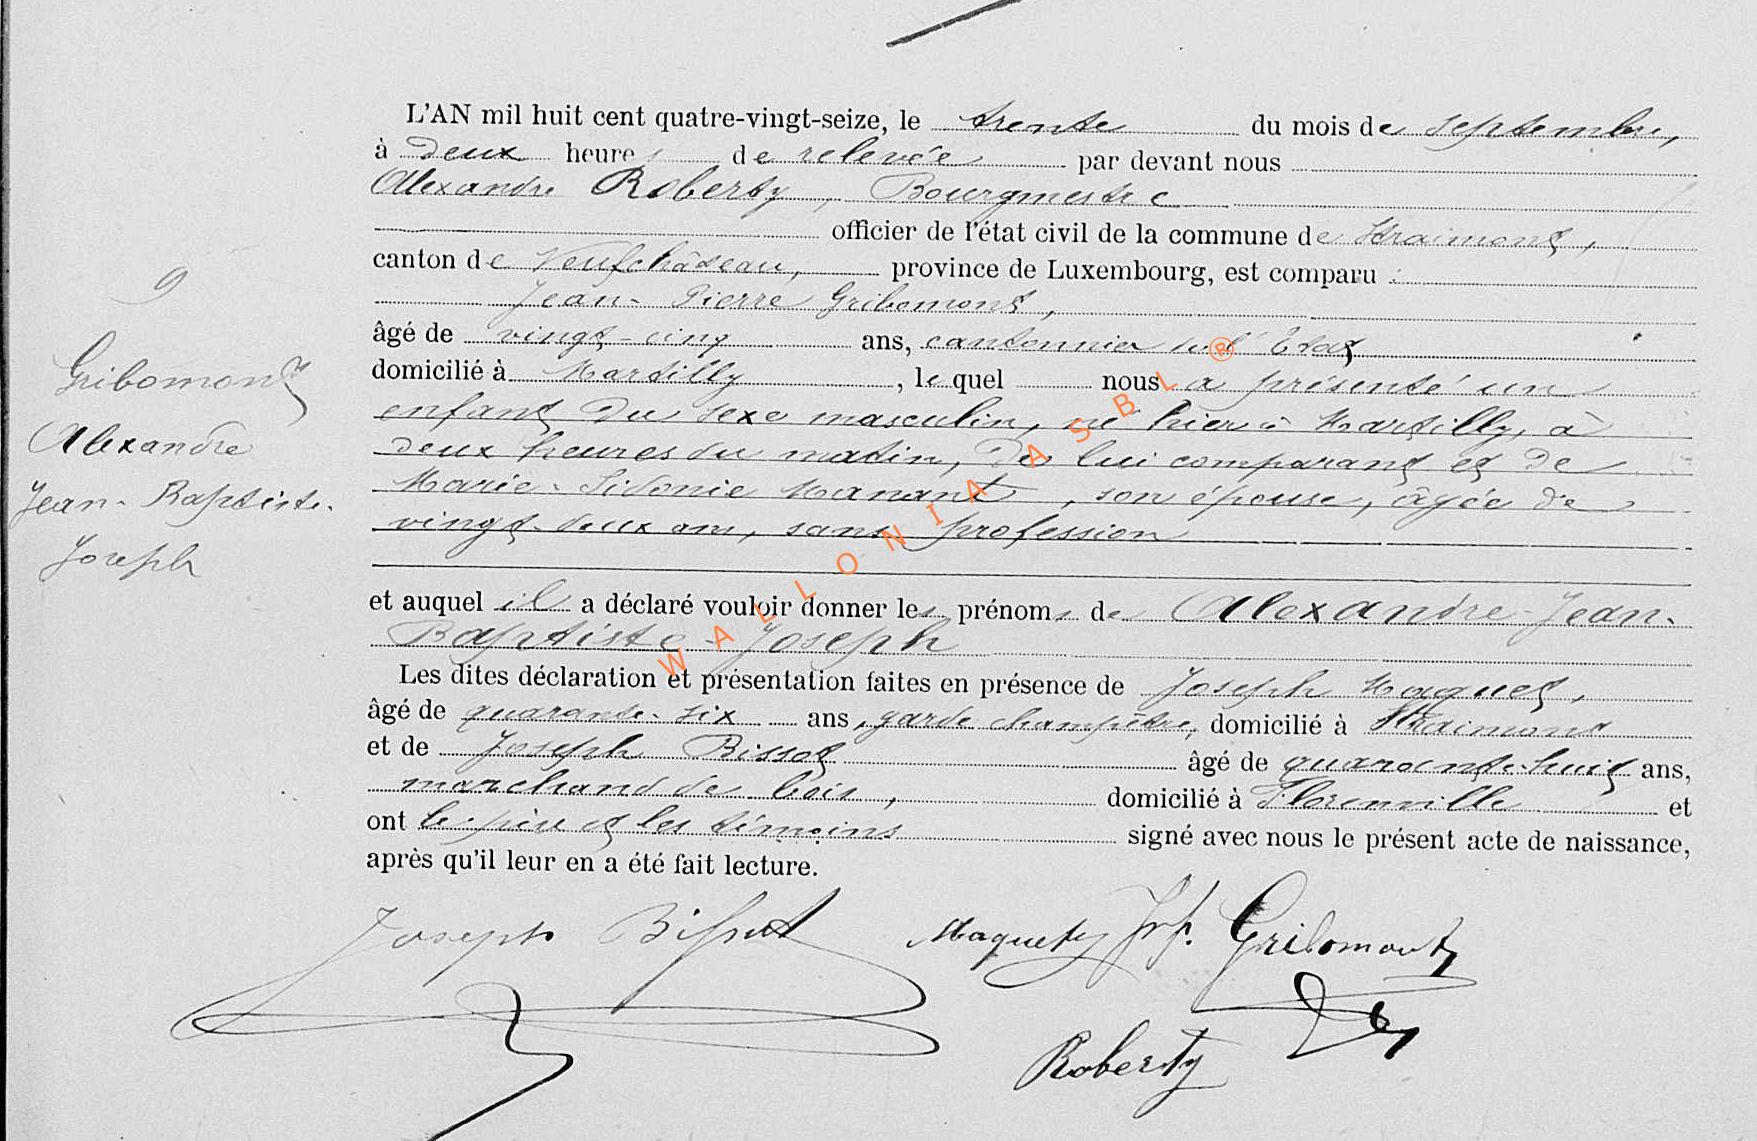 L'AN mil huit cent quatre-vingt-seize, le trente du mois de septembre,
à deux heures de relevée par devant nous
Alexandre Roberty, Bourgmestre
officier de l'état civil de la commune de Straimont,
canton de Neufchâteau, province de Luxembourg, est comparu :
Jean-Pierre Gribomont,
âgé de vingt-cinq ans, cantonnier de l'Etat
domicilié à Martilly, le quel nous a présenté un
enfant du sexe masculin, né hier à Martilly, à
deux heures du matin, De lui comparant et de
Marie-Sidonie Manant, son épouse, âgée de
vingt-deux ans, sans profession
et auquel il a déclaré vouloir donner les prénoms de Alexandre-Jean-
Baptiste-Joseph
Les dites déclaration et présentation faites en présence de Joseph Maquet,
âgé de quarante-six ans, garde champêtre, domicilié à Straimont
et de Joseph Bissot âgé de quarante-huit ans,
marchand de bois, domicilié à Florenville et
ont le père et les témoins signé avec nous le présent acte de naissance,
après qu'il leur en a été fait lecture.
9
Gribomont
Alexandre
Jean-Baptiste-
Joseph
Joseph Bissot
Maquet Jph. Gribomont
Roberty
WALLONIA ASBL ®